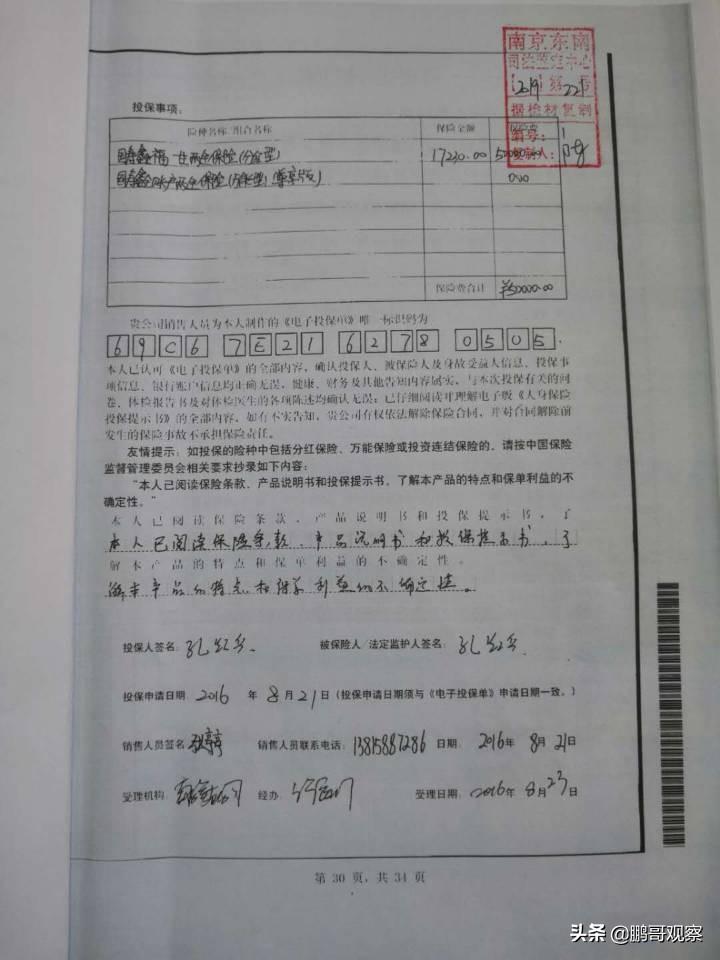 南京东南
司法鉴定中心
据检材复制
编号：
复制人：
投保事项：
险种名称/组合名称 保险金额 保险费
国寿鑫福一生两全保险(分红型) 17230.00 50000.00
保险费合计 ¥50000.00
贵公司销售人员为本人制作的《电子投保单》唯一标识码为
69C6 7E21 6278 0505.
本人已认可《电子投保单》的全部内容，确认投保人、被保险人及身故受益人信息、投保事
项信息、银行账户信息均正确无误，健康、财务及其他告知内容属实，与本次投保有关的问
卷、体检报告书及对体检医生的各项陈述均确认无误；已仔细阅读并理解电子版《人身保险
投保提示书》的全部内容，如有不实告知，贵公司有权依法解除保险合同，并对合同解除前
发生的保险事故不承担保险责任。
友情提示：如投保的险种中包括分红保险、万能保险或投资连结保险的，请按中国保险
监督管理委员会相关要求抄录如下内容：
“本人已阅读保险条款、产品说明书和投保提示书，了解本产品的特点和保单利益的不
确定性。”
本人已阅读保险条款、产品说明书和投保提示书，了
本人已阅读保险条款、产品说明书和投保提示书，了
解本产品的特点和保单利益的不确定性。
解本产品的特点和保单利益的不确定性。
投保人签名： 被保险人/法定监护人签名：
投保申请日期 2016 年 8月21日(投保申请日期须与《电子投保单》申请日期一致。)
销售人员签名 销售人员联系电话：13815887286 日期： 2016年 8月21日
受理机构 经办： 受理日期：2016年 8月23日
第 30 页，共 34 页
头条 @鹏哥观察